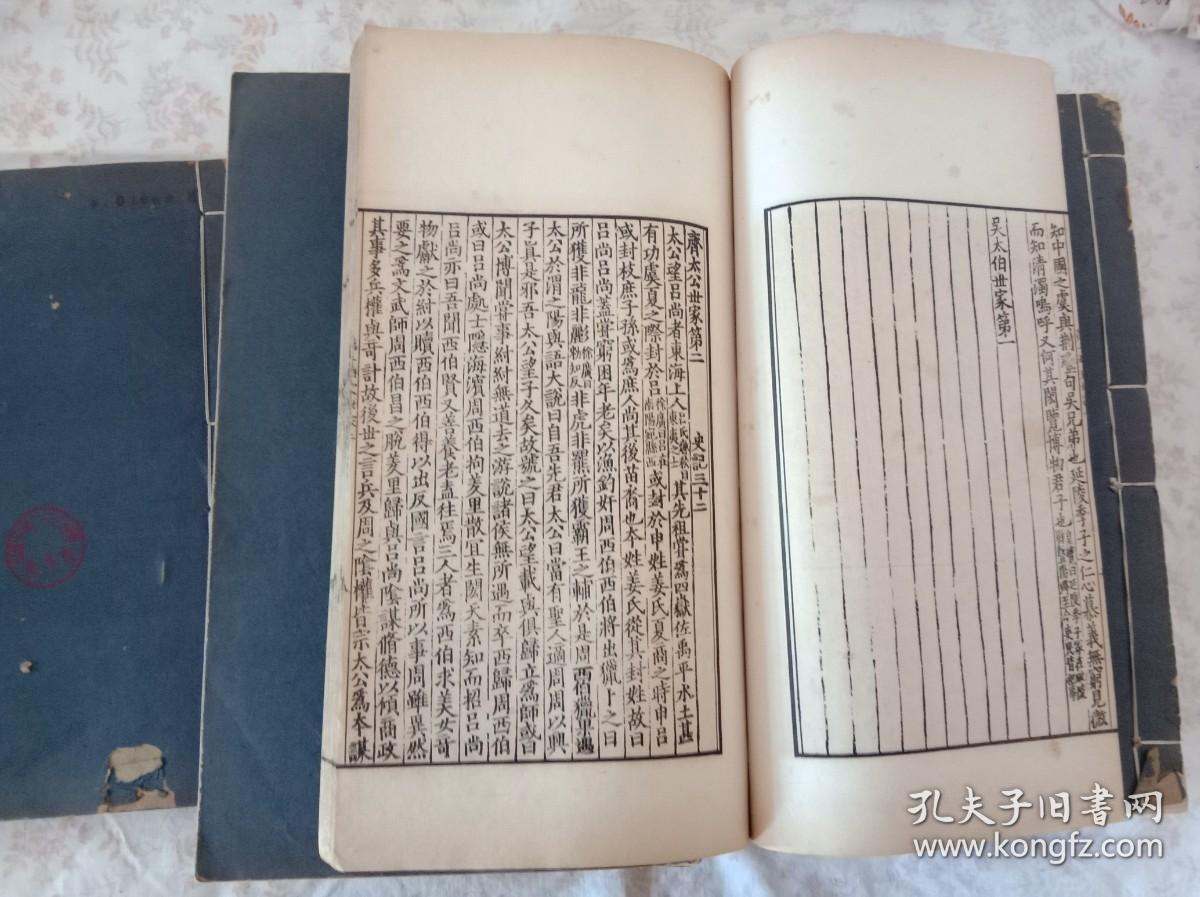 知中國之虞與荆蠻句吳兄弟也延陵季子之仁心慕義無窮見微
而知清濁嗚呼又何其閎覽博物君子也
吳太伯世家第一
齊太公世家第二 史記三十二
太公望吕尚者東海上人 其先祖嘗爲四嶽佐禹平水土甚
有功虞夏之際封於吕 徐廣曰吕在南陽宛縣西 或封於申姓姜氏夏商之時申吕
或封枝庶子孫或爲庶人尚其後苗裔也本姓姜氏從其封姓故曰
吕尚吕尚蓋嘗窮困年老矣以漁釣奸周西伯西伯將出獵卜之曰
所獲非龍非彲 徐廣曰勑知反 非虎非羆所獲霸王之輔於是周西伯獵果遇
太公於渭之陽與語大說曰自吾先君太公曰當有聖人適周周以興
子真是邪吾太公望子久矣故號之曰太公望載與俱歸立爲師或曰
太公博聞嘗事紂紂無道去之游說諸侯無所遇而卒西歸周西伯
或曰吕尚處士隱海濱周西伯拘羑里散宜生閎夭素知而招吕尚
吕尚亦曰吾聞西伯賢又善養老盍往焉三人者爲西伯求美女奇
物獻之於紂以贖西伯西伯得以出反國言吕尚所以事周雖異然
要之爲文武師周西伯昌之脫羑里歸與吕尚陰謀脩德以傾商政
其事多兵權與奇計故後世之言兵及周之陰權皆宗太公爲本謀
孔夫子旧书网
www.kongfz.com